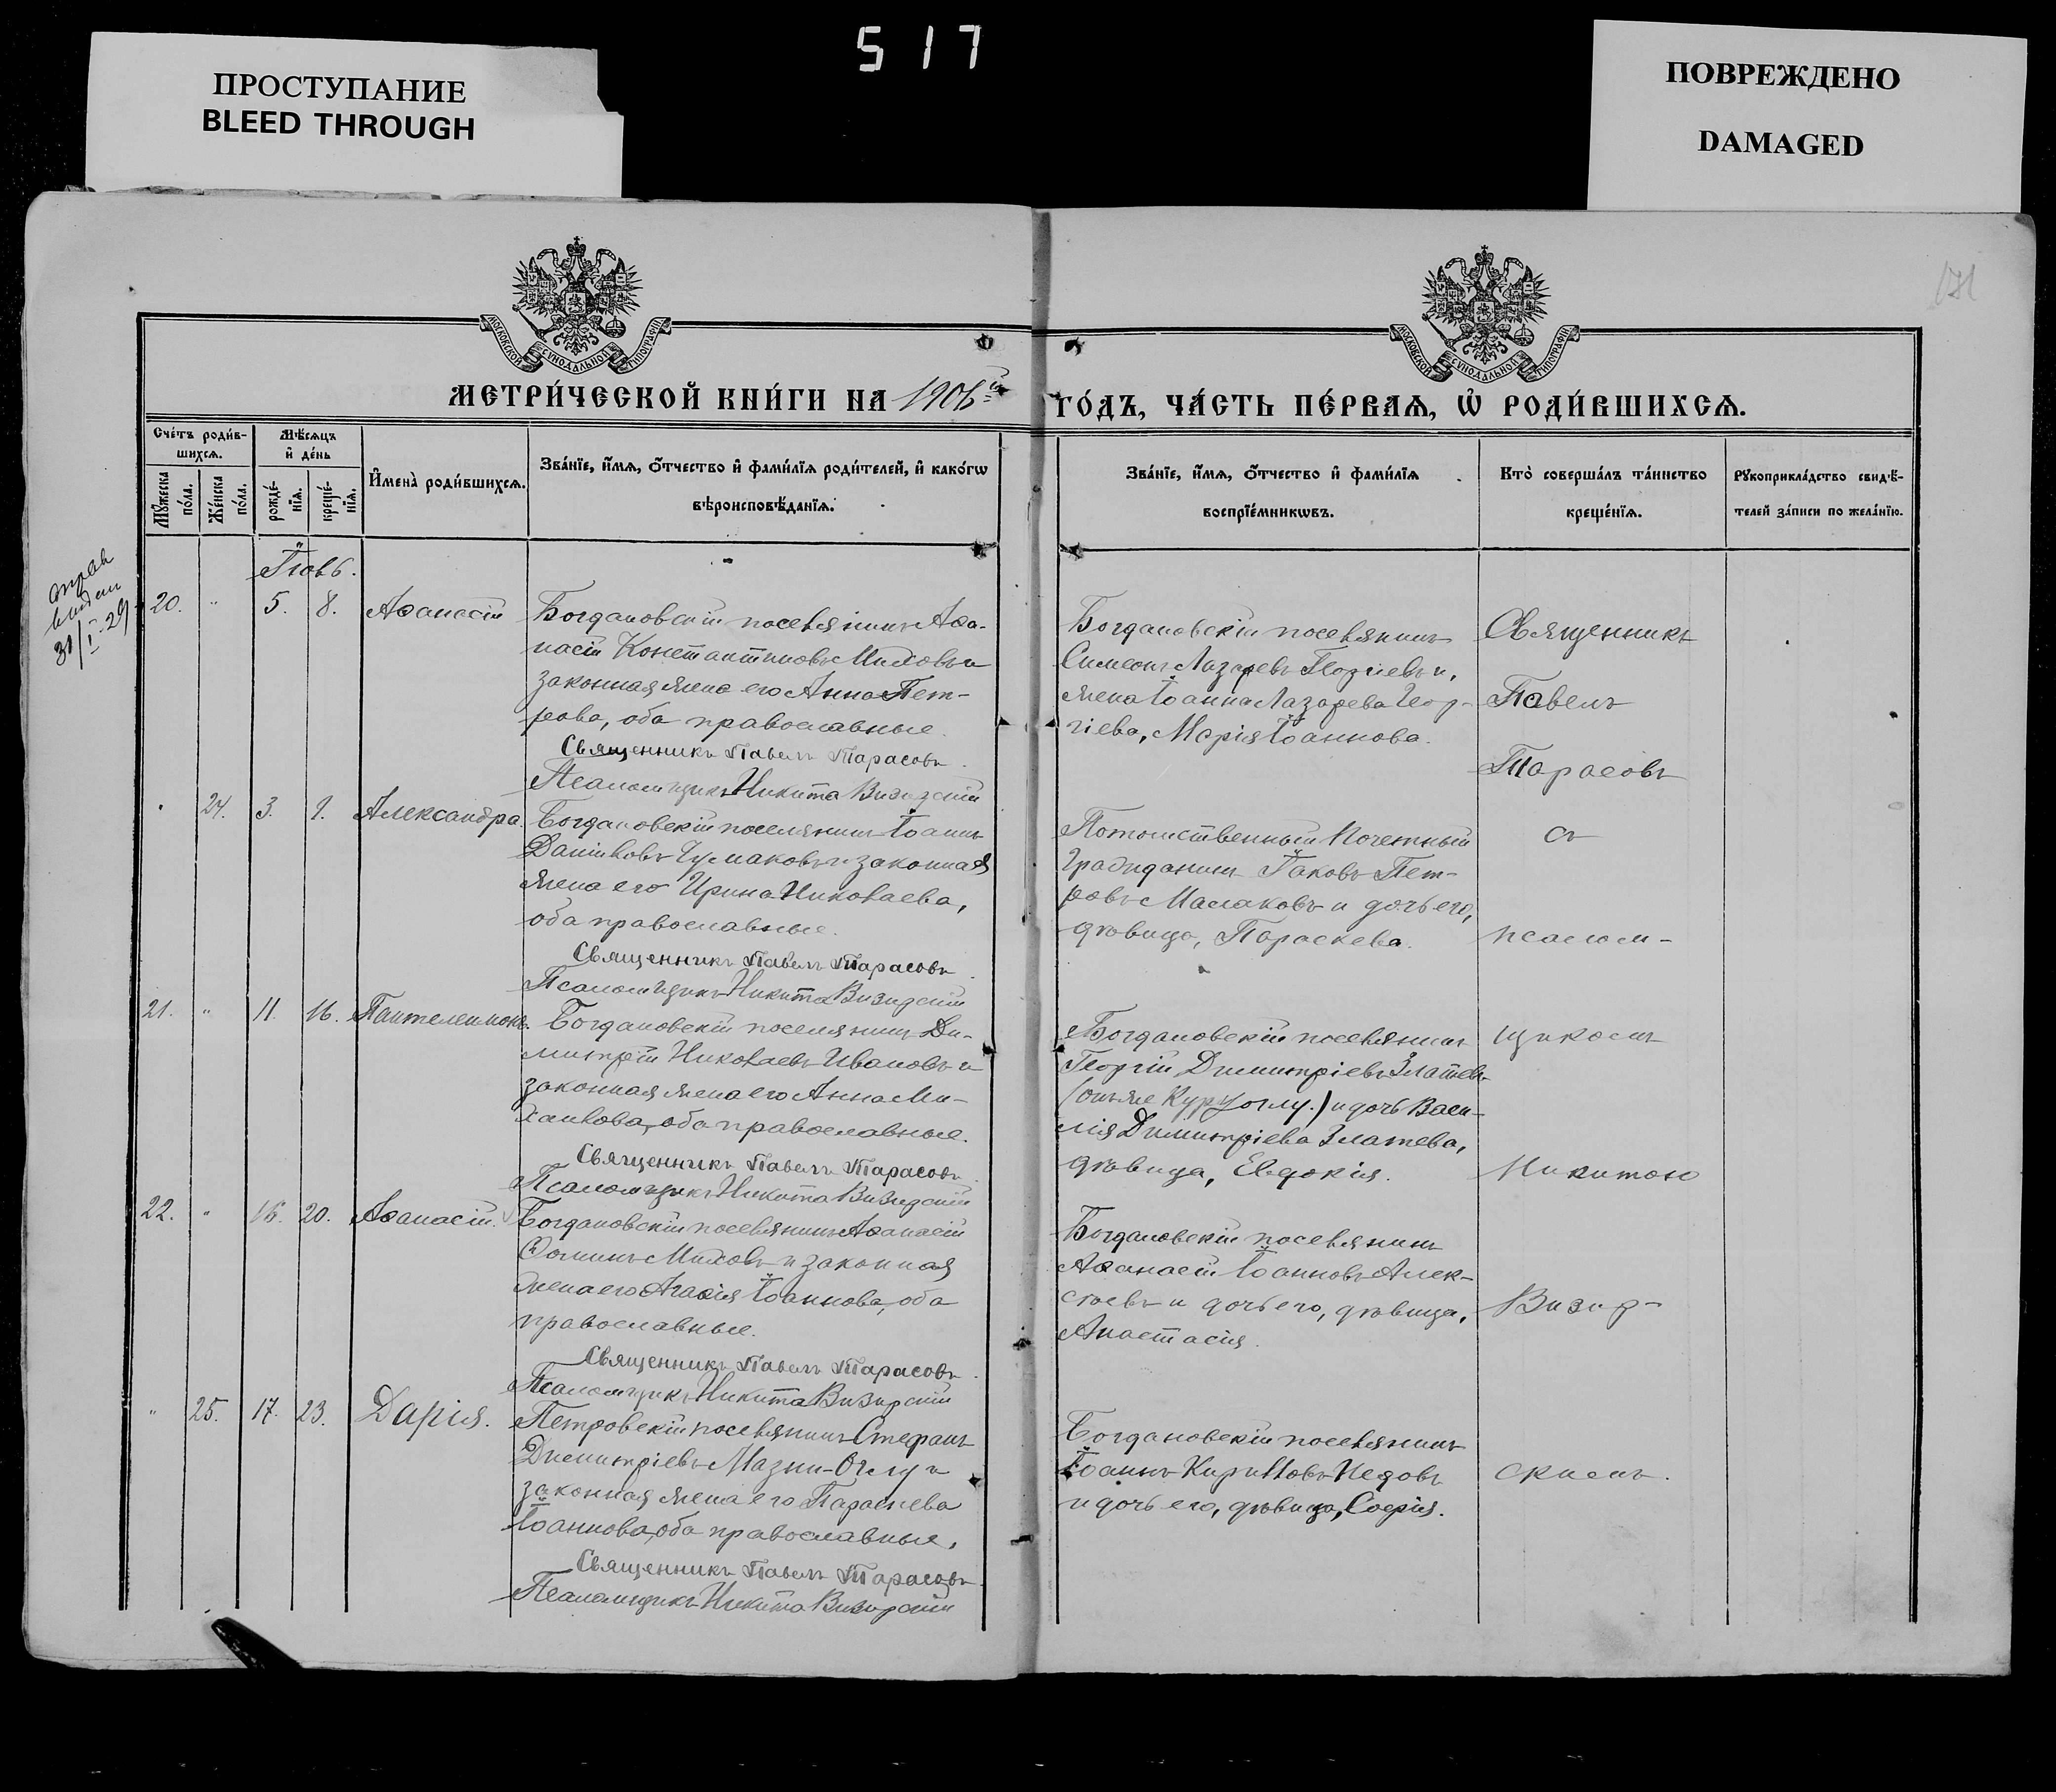 517
ПРОСТУПАНИЕ
BLEED THROUGH
ПОВРЕЖДЕНО
DAMAGED
МОСКОВСКОЙ СѴНОДАЛЬНОЙ ТИПОГРАФІИ
МОСКОВСКОЙ СѴНОДАЛЬНОЙ ТИПОГРАФІИ
МЕТРИ́ЧЕСКОЙ КНИ́ГИ НА 1906й
ГО́ДЪ, ЧА́СТЬ ПЕ́РВАѦ, Ѡ҆ РОДИ́ВШИХСѦ.
Сче́тъ роди́в-
шихсѧ.
Мꙋ́жеска по́ла.
Же́нска по́ла.
Мѣ́сѧцъ и҆ де́нь
рожде́-нїѧ.
креще́-нїѧ.
И҆мена̀ роди́вшихсѧ.
Зва́нїе, и҆́мѧ, ѻ҆́тчество и҆ фами́лїѧ роди́телей, и҆ како́гѡ
вѣроисповѣ́данїѧ.
Зва́нїе, и҆́мѧ, ѻ҆́тчество и҆ фами́лїѧ
воспрїе́мникѡвъ.
Кто̀ соверша́лъ та́инство
креще́нїѧ.
Рꙋкоприкла́дство свидѣ́-
телей за́писи по жела́нїю.
31/I.29
Іюль.
20. " 5. 8. Аѳанасій
Богдановскій поселянинъ Аѳа-
насій Константиновъ Милковъ и
законная жена его Анна Пет-
рова, оба православные.
Священникъ Павелъ Тарасовъ.
Псаломщикъ Никита Визирскій
Богдановскій поселянинъ
Симеонъ Лазаревъ Георгіевъ и,
жена Іоанна Лазарева Геор-
гіева, Марія Іоаннова.
24. 3. 9. Александра.
Богдановскій поселянинъ Іоаннъ
Даніиловъ Чумаковъ и законная
жена его Ирина Николаева,
оба православные.
Священникъ Павелъ Тарасовъ.
Псаломщикъ Никита Визирскій
Потомственный Почетный
Гражданинъ Іаковъ Пет-
ровъ Маслаковъ и дочь его,
дѣвица, Параскева.
21. " 11. 16. Пантелеимонъ.
Богдановскій поселянинъ Ди-
митрій Николаевъ Ивановъ и
законная жена его Анна Ми-
хаилова, оба православные.
Священникъ Павелъ Тарасовъ.
Псаломщикъ Никита Визирскій
Богдановскій поселянинъ
Георгій Димитріевъ Златевъ
(онъ же Куруоглу.) и дочь Васи-
лія Димитріева Златева,
дѣвица, Евдокія.
22. " 16. 20. Аѳанасій.
Богдановскій поселянинъ Аѳанасій
Ѳоминъ Милковъ и законная
жена его Агаѳія Іоаннова, оба
православные.
Священникъ Павелъ Тарасовъ.
Псаломщикъ Никита Визирскій
Богдановскій поселянинъ
Аѳанасій Іоанновъ Алек-
сѣевъ и дочь его, дѣвица,
Анастасія.
" 25. 17. 23. Дарія.
Петровскій поселянинъ Стефанъ
Димитріевъ Мазни-Оглу и
законная жена его Параскева
Іоаннова, оба православные,
Священникъ Павелъ Тарасовъ.
Псаломщикъ Никита Визирскій
Богдановскій поселянинъ
Іоаннъ Кирилловъ Недовъ
и дочь его, дѣвица, Софія.
Священникъ
Павелъ
Тарасовъ
съ
псалом-
щикомъ
Никитою
Визир-
скимъ.